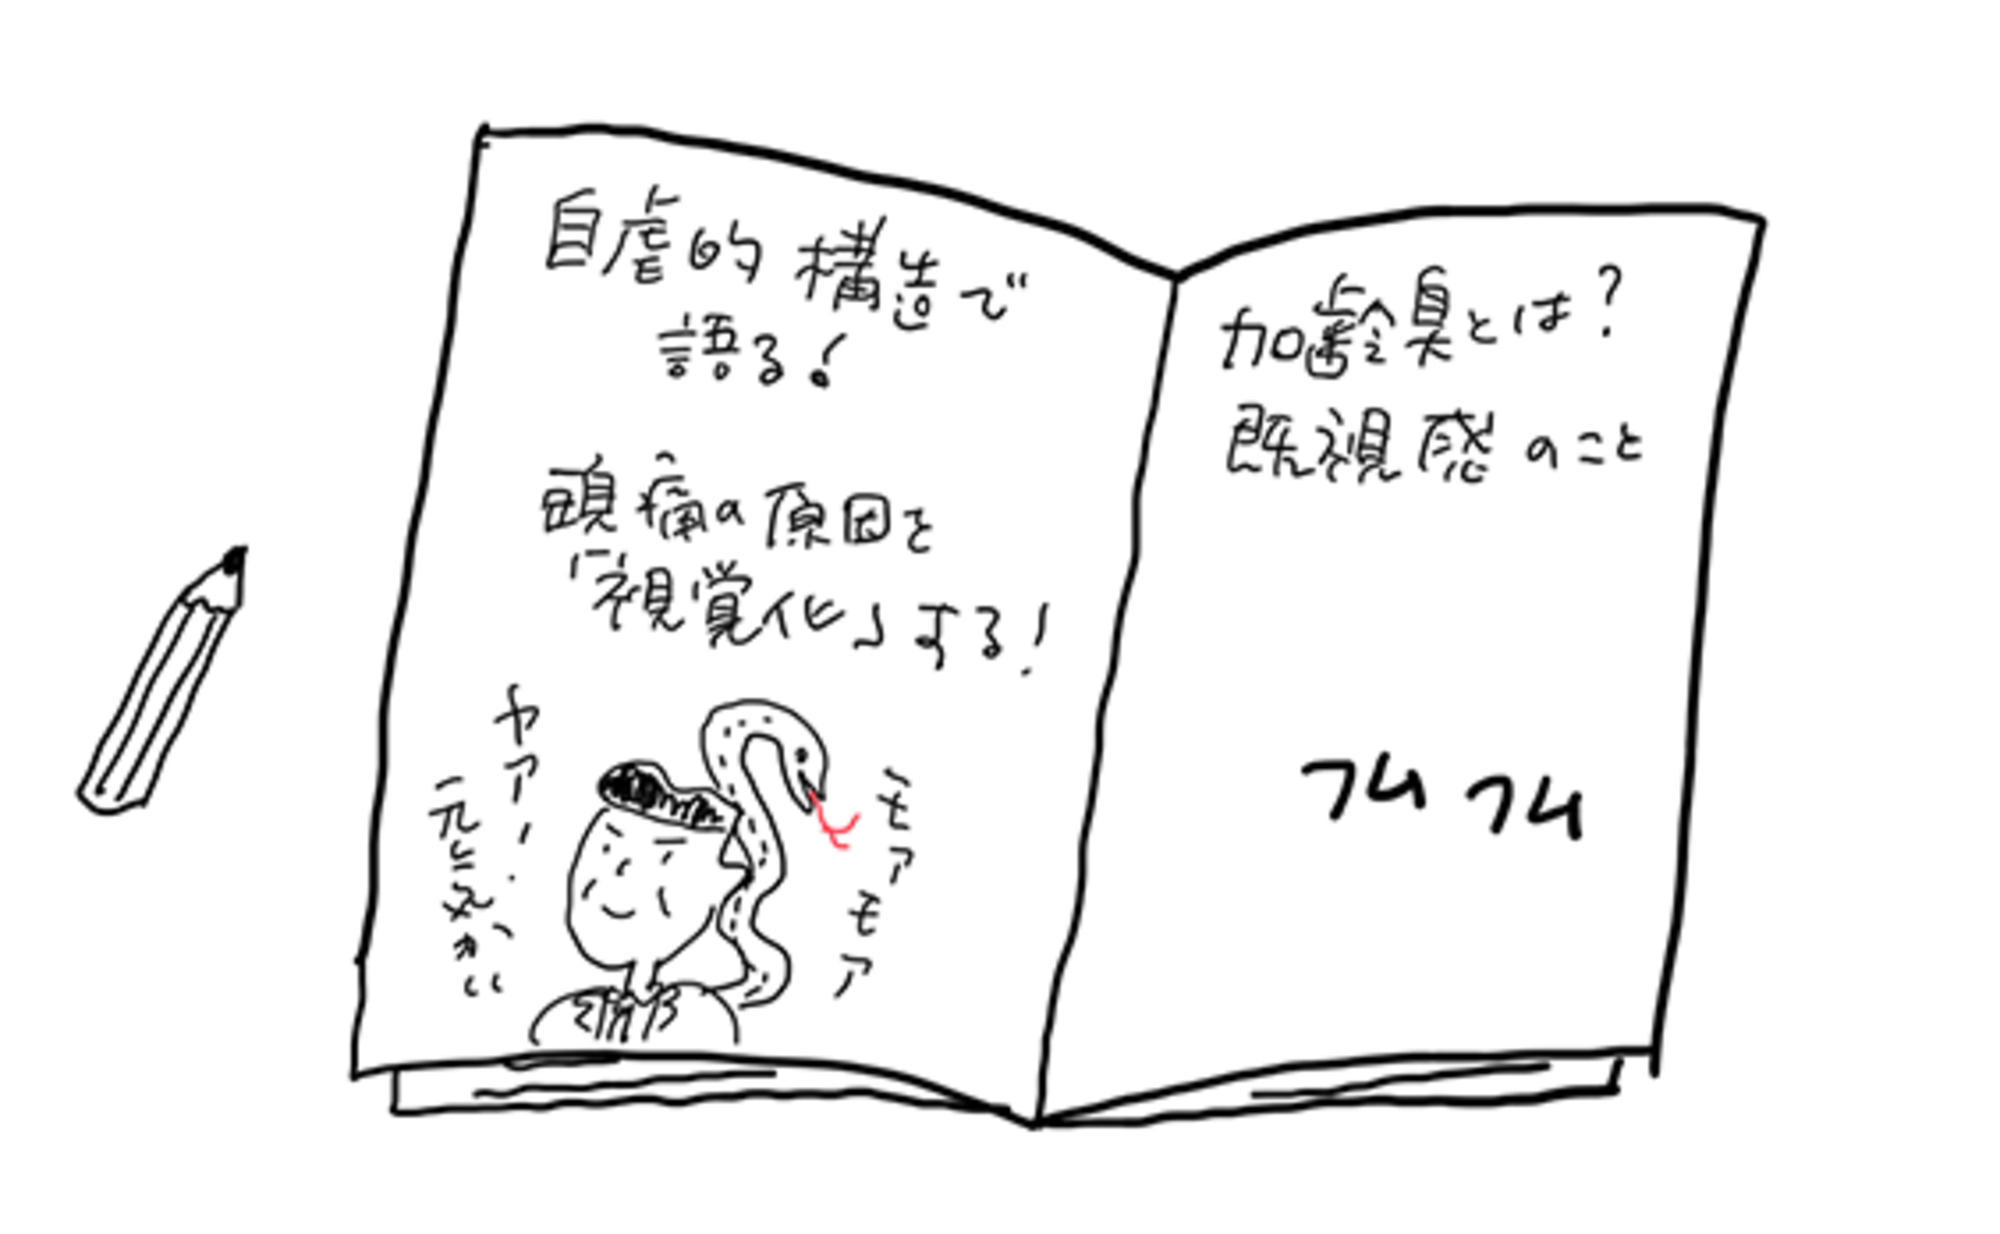 自虐的構造で
語る!
頭痛の原因を
「視覚化」する!
ヤアー!
元気かい
モア
モア
加齢臭とは?
既視感のこと
フムフム